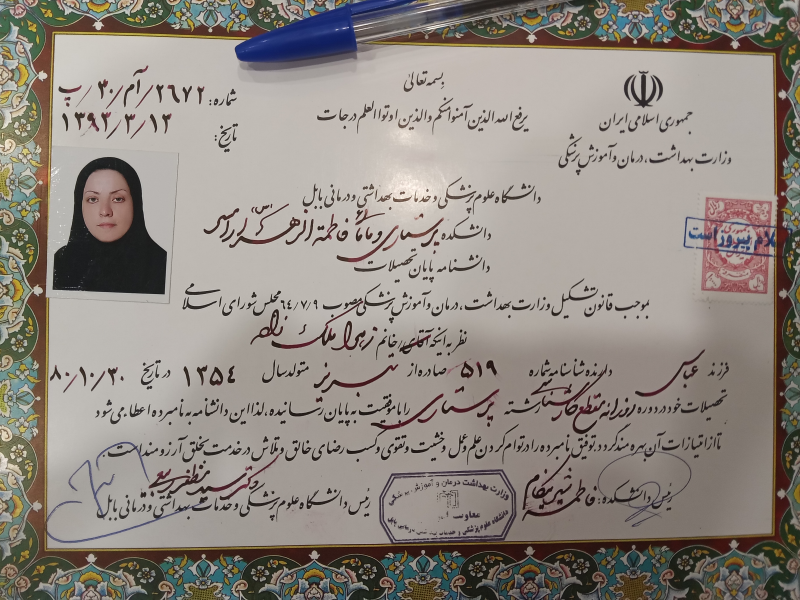 بسمه تعالی
یرفع الله الذین آمنوا منکم والذین اوتوا العلم درجات
جمهوری اسلامی ایران
وزارت بهداشت، درمان و آموزش پزشکی
شماره: ۲۶۷۲/آم/۳۰/پ
تاریخ: ۱۳۹۳/۳/۱۲
دانشگاه علوم پزشکی و خدمات بهداشتی و درمانی بابل
دانشکده پرستاری و مامائی فاطمة الزهرا (س) رامسر
دانشنامه پایان تحصیلات
بموجب قانون تشکیل وزارت بهداشت، درمان و آموزش پزشکی مصوب ۶۴/۷/۹ مجلس شورای اسلامی
نظر به اینکه آقای/خانم زهرا ملک زاده
فرزند عباس دارنده شناسنامه شماره ۵۱۹ صادره از تبریز متولد سال ۱۳۵۴ در تاریخ ۸۰/۱۰/۳۰
تحصیلات خود در دوره روزانه مقطع کارشناسی رشته پرستاری را با موفقیت به پایان رسانیده، لذا این دانشنامه به نامبرده اعطاء می شود
تا از امتیازات آن بهره مند گردد. توفیق نامبرده را در توام کردن علم و عمل و خشیت و تقوی و کسب رضای خالق و تلاش در خدمت بخلق آرزومند است.
رئیس دانشکده: فاطمه شیر بیگام
دکتر سید مظفر ربیعی
رئیس دانشگاه علوم پزشکی و خدمات بهداشتی و درمانی بابل
وزارت بهداشت درمان و آموزش پزشکی
معاونت
دانشگاه علوم پزشکی و خدمات بهداشتی درمانی بابل
پیروز است